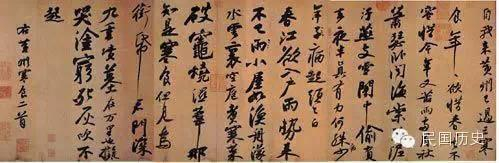 自我來黃州已過三寒
食年年欲惜春春去不
容惜今年又苦雨兩月秋
蕭瑟臥聞海棠花泥
汙燕支雪闇中偷負
去夜半真有力何殊
年子病起頭已白
春江欲入戶雨勢來
不已雨小屋如漁舟濛濛
水雲裏空庖煮寒菜
破竈燒濕葦那
知是寒食但見烏
銜帋君門深
九重墳墓在万里也擬
哭塗窮死灰吹不
起
右黃州寒食二首
民国历史